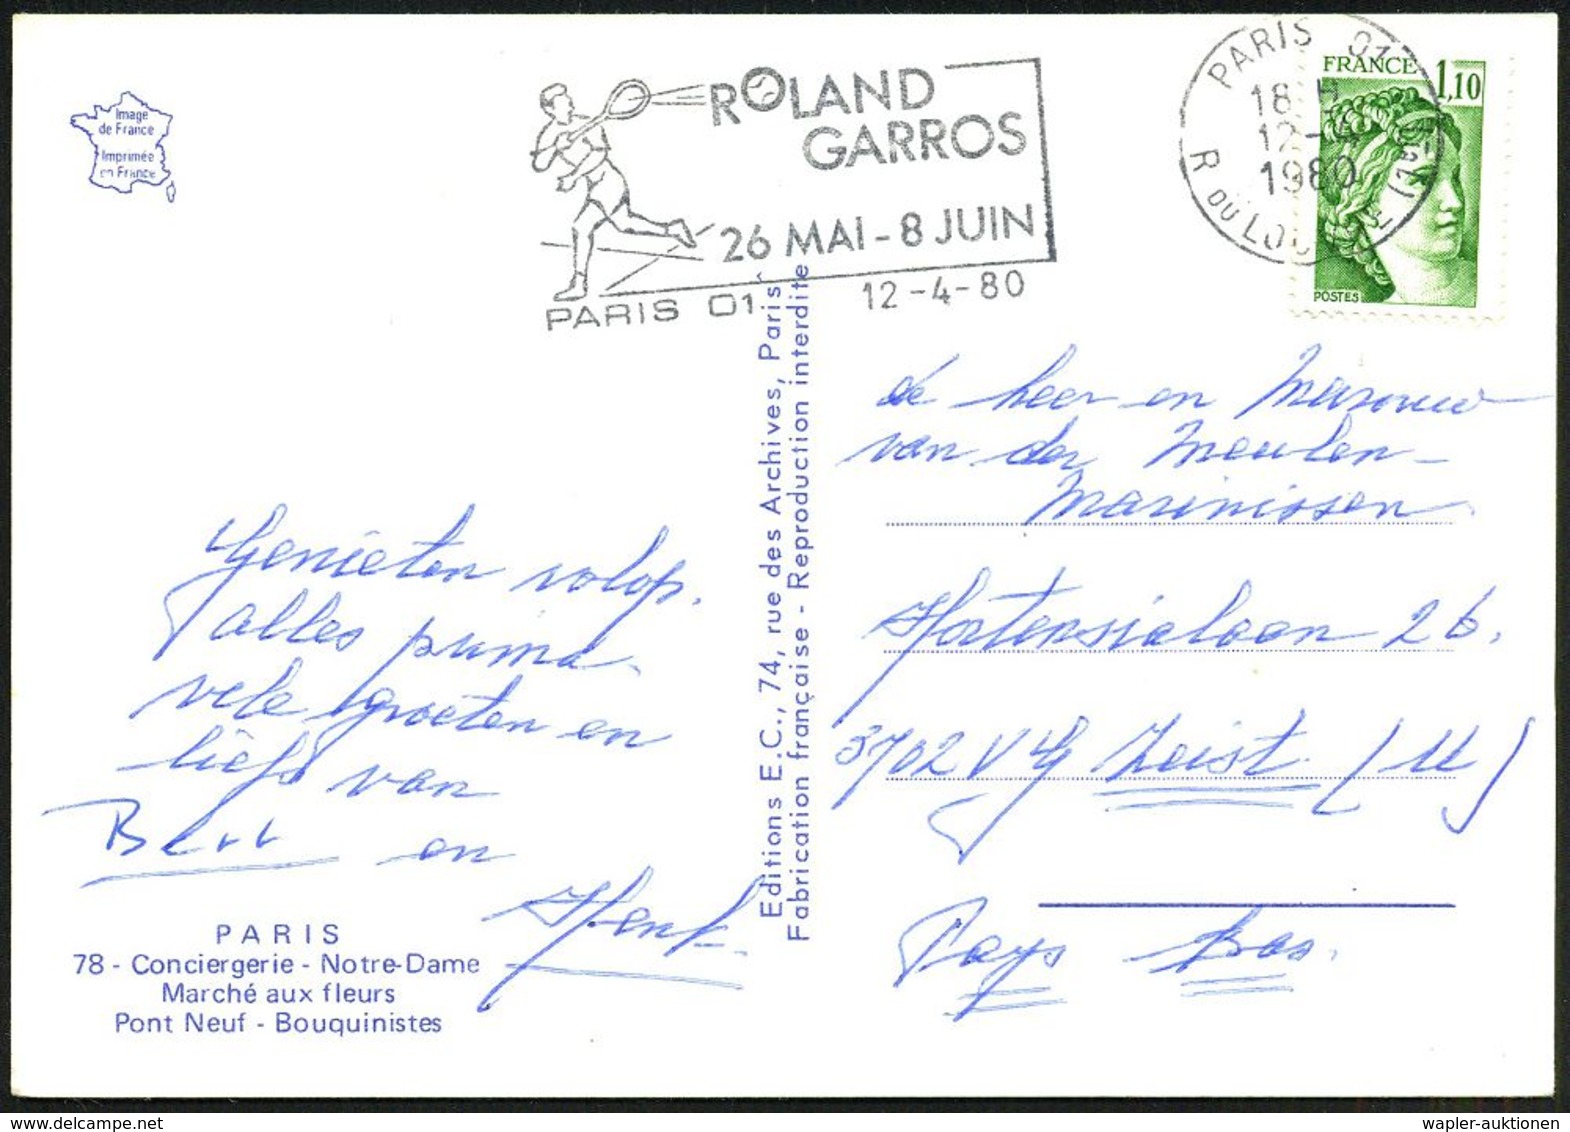 Image
de France
Imprimée
en France
ROLAND
GARROS
26 MAI - 8 JUIN
PARIS 01
12-4-80
PARIS 01
18 H
12-4
1980
R DU LOUVRE (1er)
FRANCE 1,10
POSTES
de heer en Mevrouw
van der Meulen-
Marinissen
Hortensialaan 26.
3702 VG Zeist. (U)
Pays Bas.
Genieten volop.
alles prima.
vele groeten en
liefs van
Bert en
Henk.
Editions E.C., 74, rue des Archives, Paris
Fabrication française - Reproduction interdite
PARIS
78 - Conciergerie - Notre-Dame
Marché aux fleurs
Pont Neuf - Bouquinistes
wapler-auktionen